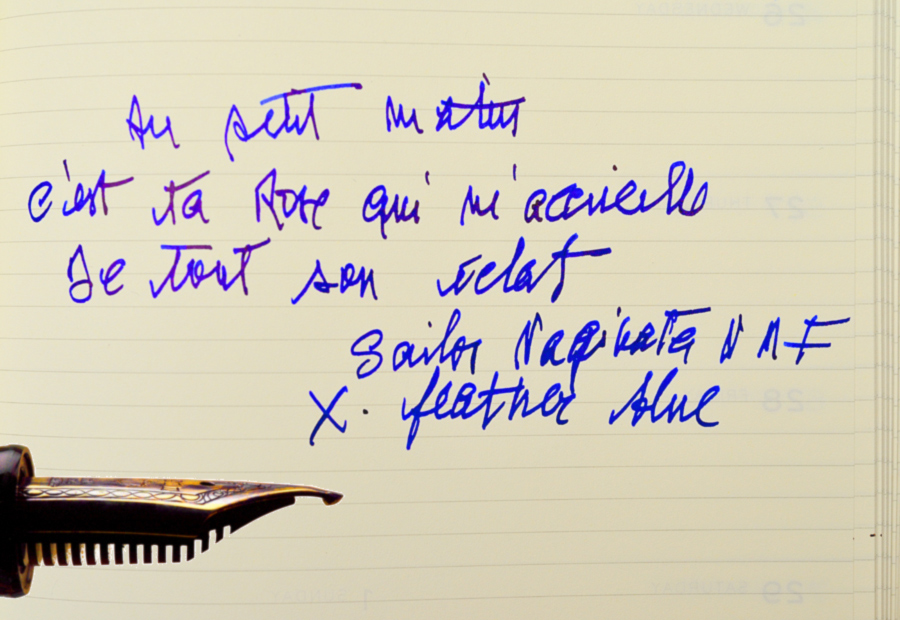 Au petit matin
c'est ta Rose qui m'accueille
De tout son eclat
Sailor Naginata NMF
X. feather blue
26 WEDNESDAY
27
28
29 SATURDAY
1 SUNDAY